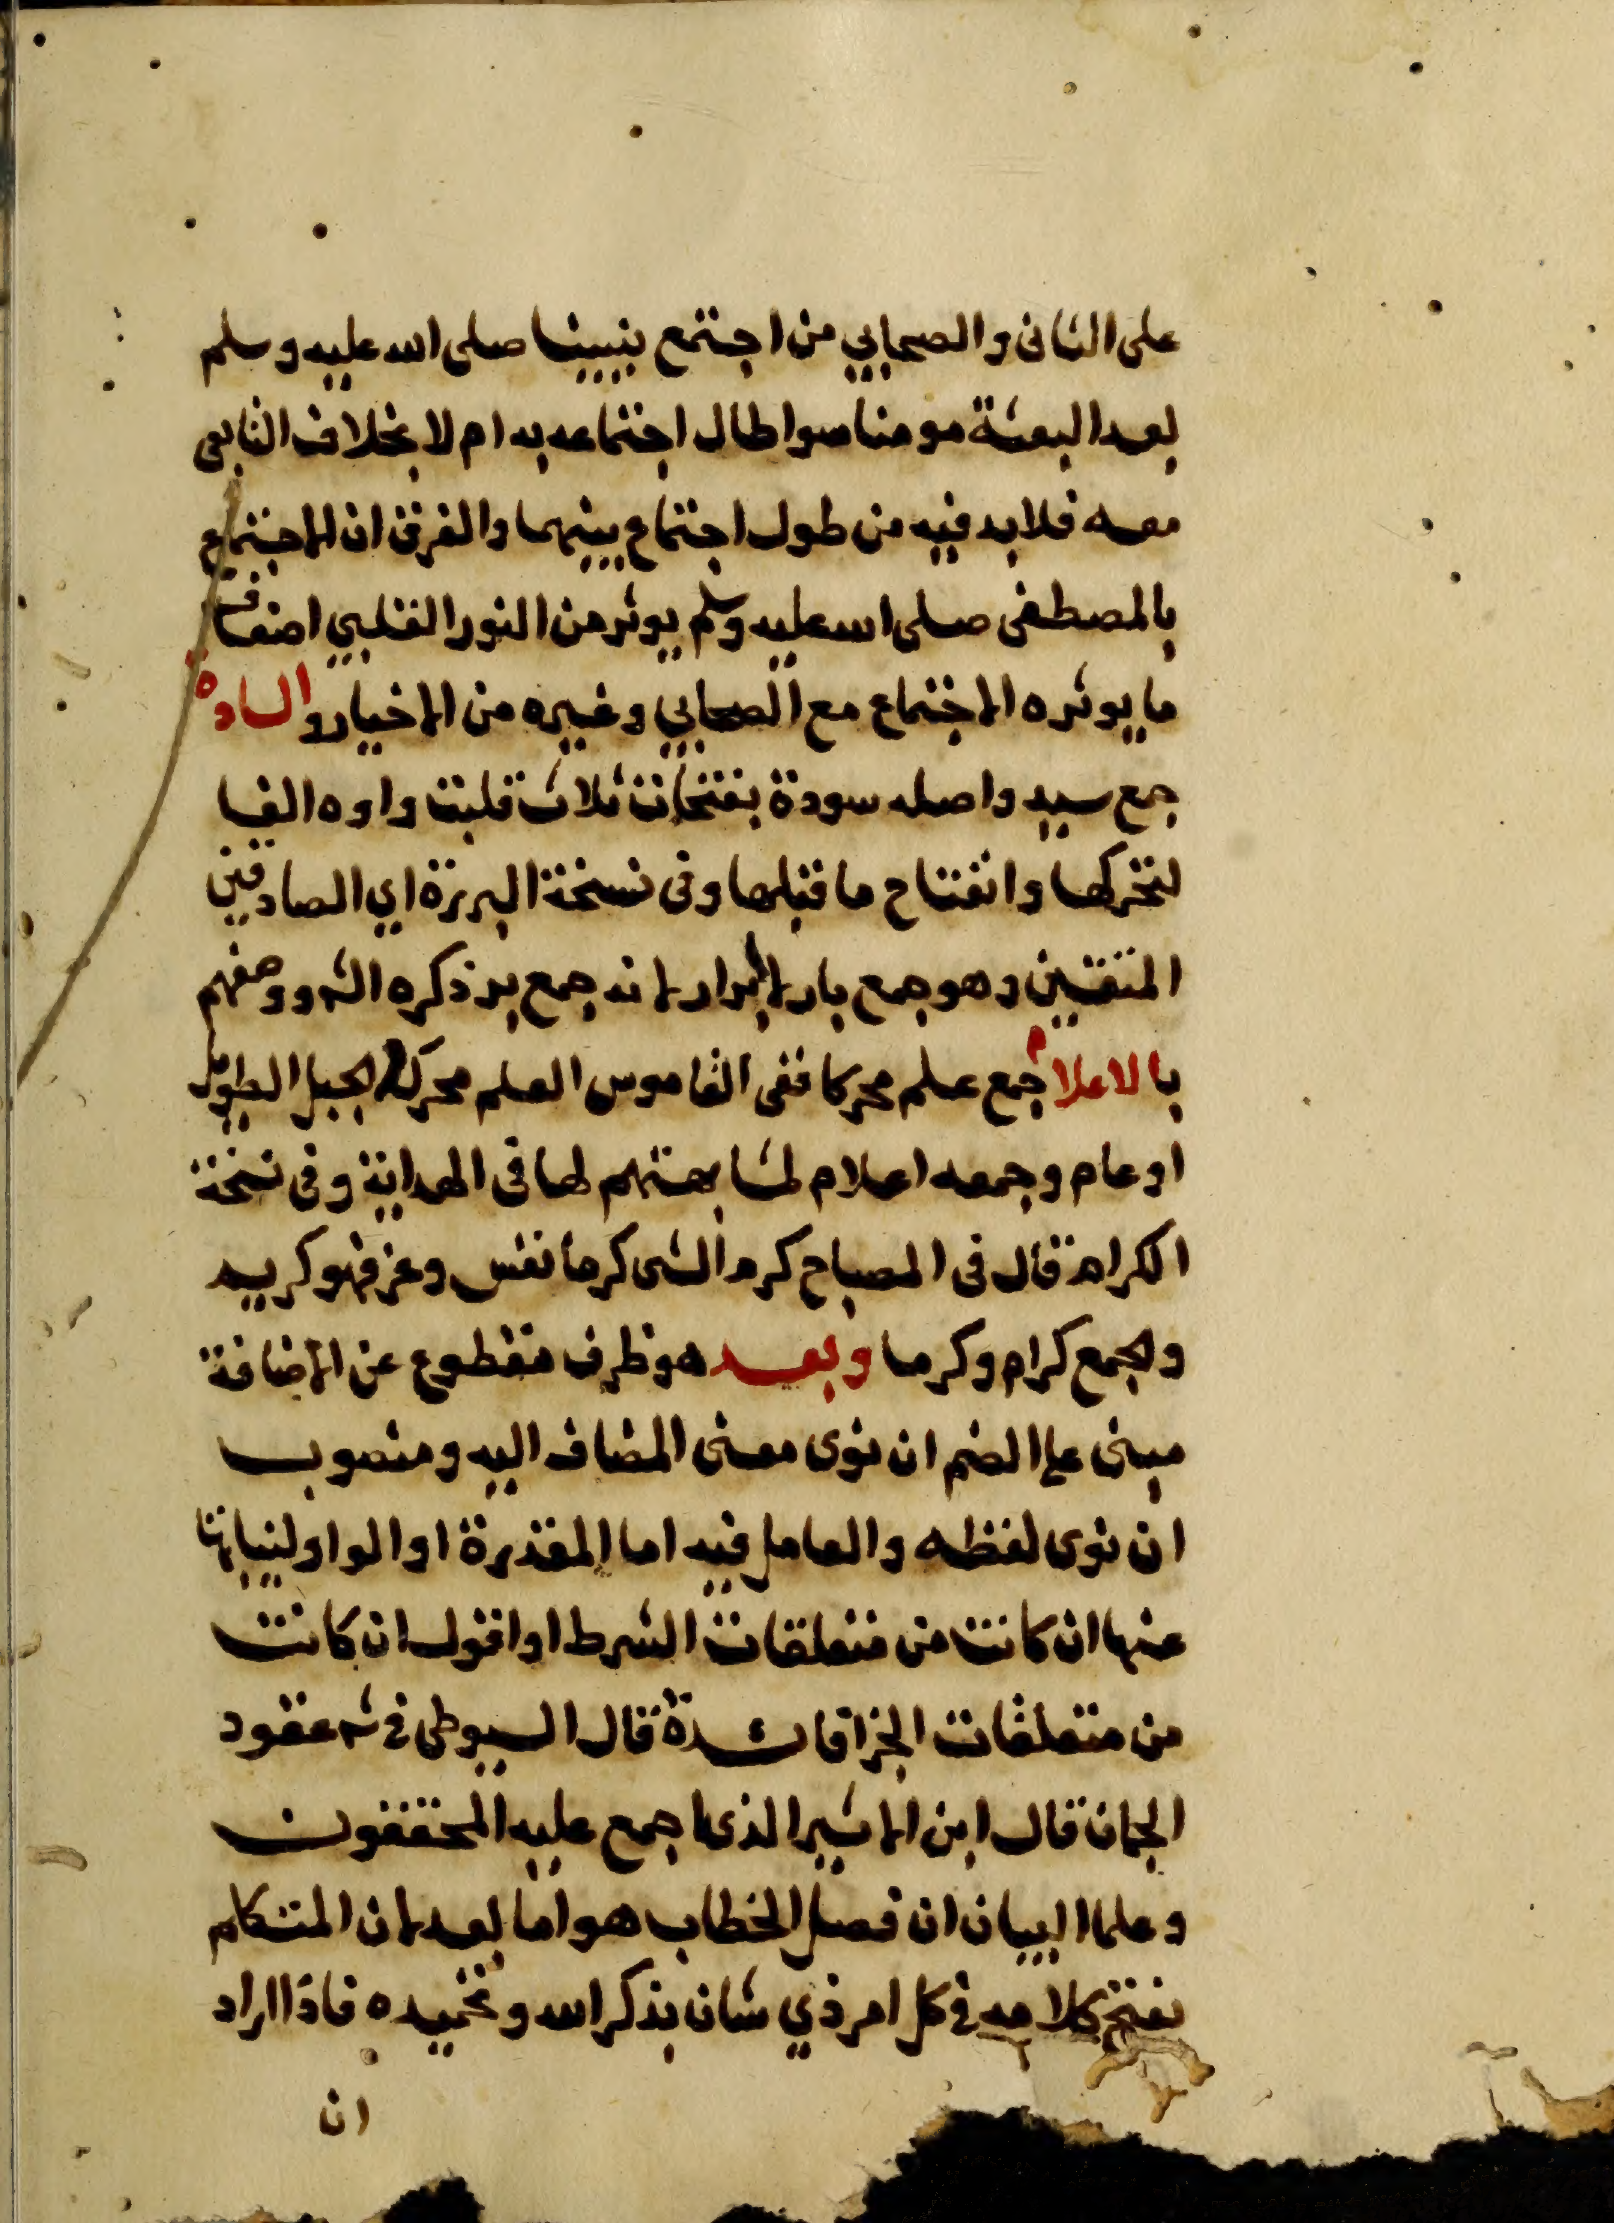 على الثانى والصحابي من اجتمع بنبينا صلى الله عليه وسلم
بعد البعثة مومنا سوا طال اجتماعه به ام لا بخلاف التابعى
معه فلا بد فيه من طول اجتماع بينهما والفرق ان الاجتماع
بالمصطفى صلى الله عليه وسلم يوثر من النور القلبي اضعاف
ما يوثره الاجتماع مع الصحابي وغيره من الاخيار والسادة
جمع سيد واصله سودة بفتحات ثلاث قلبت واوه الفا
لتحركها وانفتاح ما قبلها وفى نسخة البررة اي الصادقين
المتقين وهو جمع بار لا ابرار لانه جمع بر ذكره الشر ووصفهم
بالاعلام جمع علم محركا ففى القاموس العلم محركة الجبل الطويل
او عام وجمعه اعلام لمشابهتهم لها فى الهداية وفى نسخة
الكرام قال فى المصباح كرم الشى كرما نفس وعز فهو كريم
والجمع كرام وكرما وبعد هو ظرف مقطوع عن الاضافة
مبنى على الضم ان نوى معنى المضاف اليه ومنصوب
ان نوى لفظه والعامل فيه اما المقدرة او الواو لنيابتها
عنها ان كانت من متعلقات الشرط او اقول ان كانت
من متعلقات الجزا فائدة قال السيوطى فى شر عقود
الجمان قال ابن الاثير الذى اجمع عليه المحققون
وعلما البيان ان فصل الخطاب هو اما بعد لان المتكلم
يفتتح كلامه فى كل امر ذي شان بذكر الله وتحميده فاذا اراد
ان